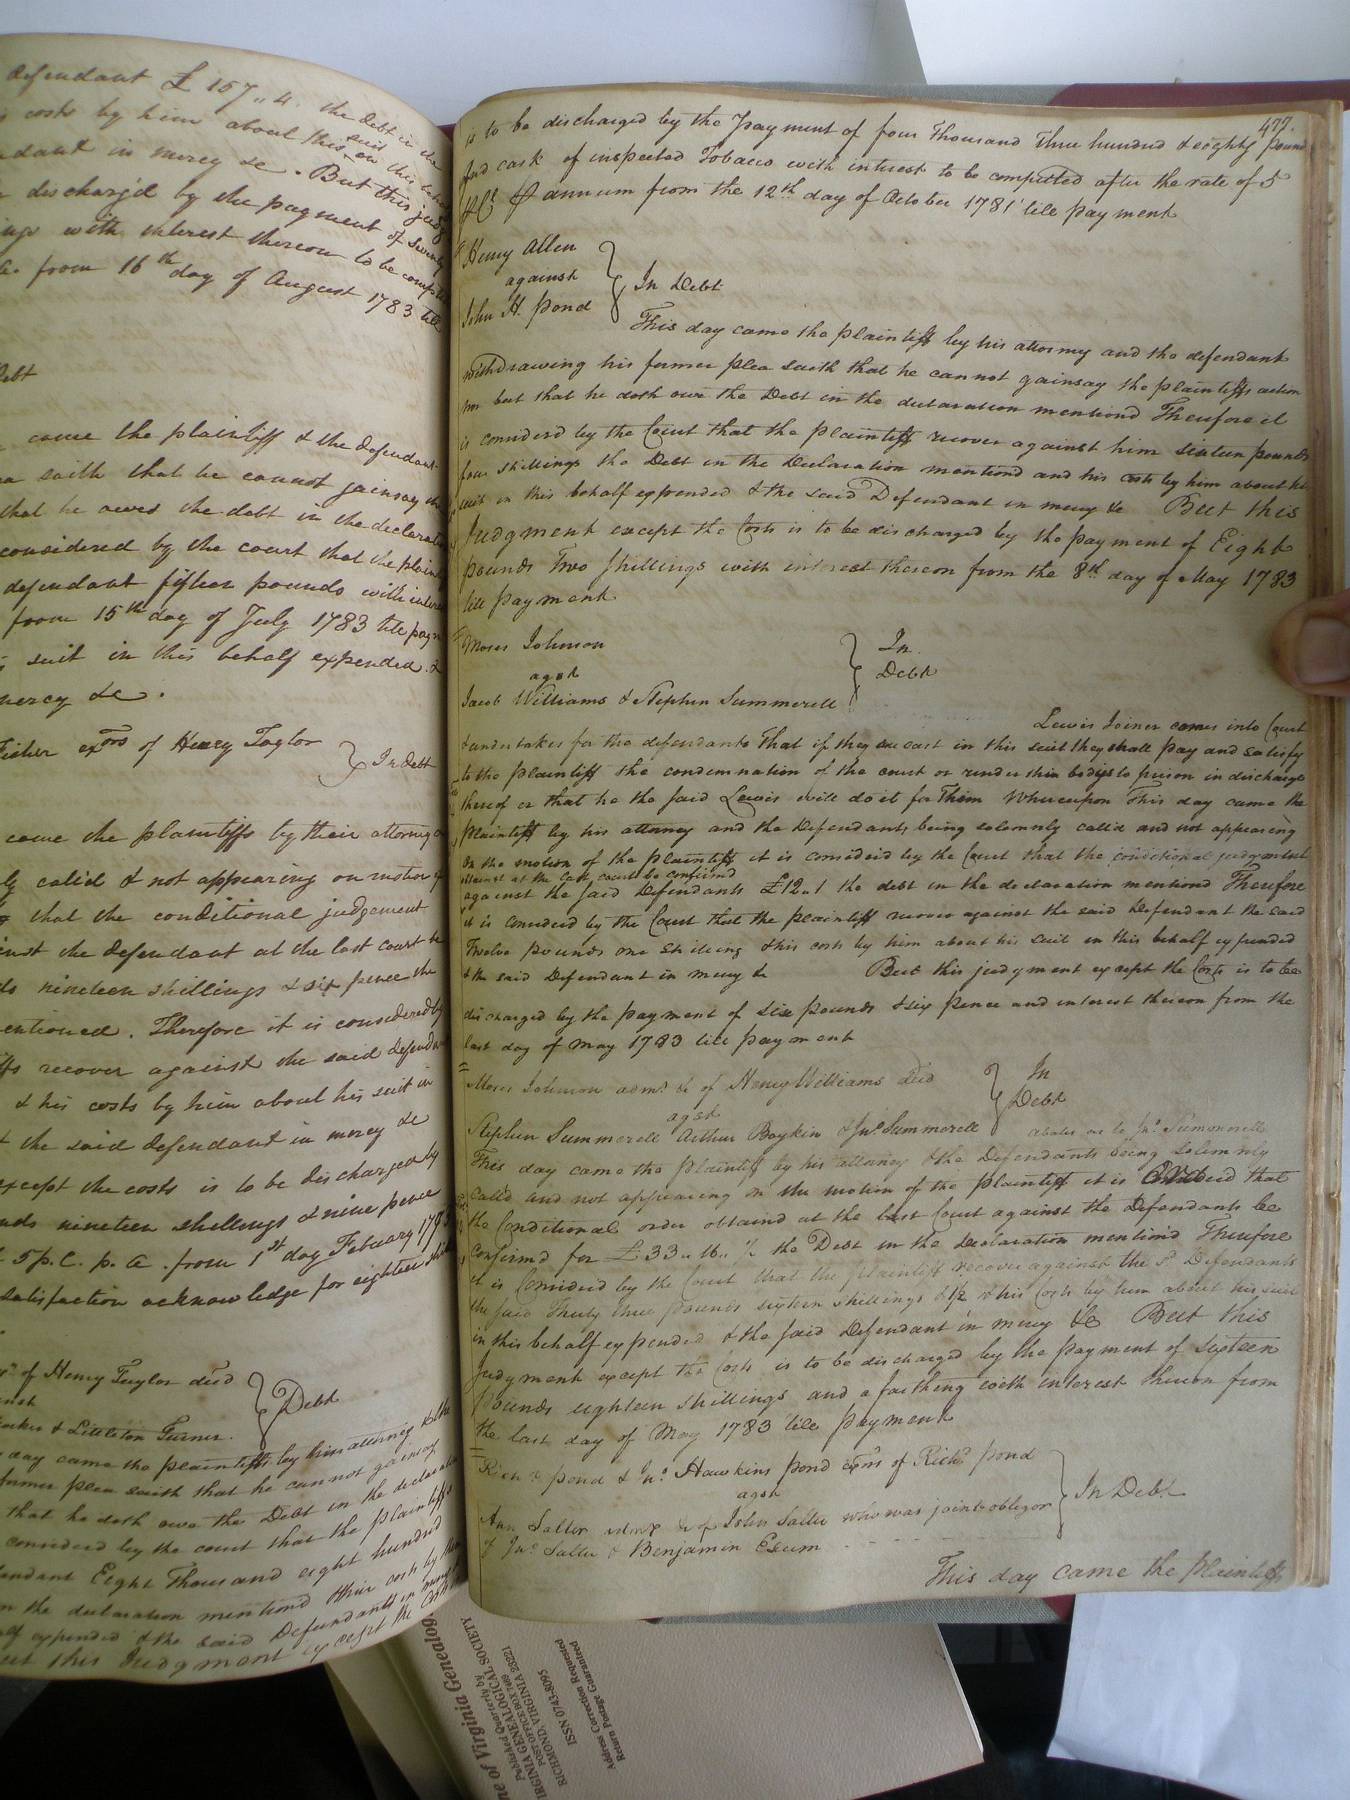 defendant £ 157,, 4. the debt in the
costs by him about this suit on this beha
ndant in mercy &c. But this judg
discharg'd by the payment of Seventy
ings with interest thereon to be comput
from 16th day of August 1783 till
Debt
came the plaintiff & the defendant
saith that he cannot gainsay the
that he owes the debt in the declaratio
considered by the court that the plain
defendant fifteen pounds with intere
from 15th day of July 1783 till paym
suit in this behalf expended &
mercy &c.
exors of Henry Taylor } In debt
came the plaintiffs by their attorney
calld & not appearing on motion of
that the conditional judgement
inst the defendant at the last court be
nineteen shillings & six pence the
entioned. Therefore it is considered by
ffs recover against the said defenda
& his costs by him about his suit in
the said defendant in mercy &c
except the costs is to be discharged by
nds nineteen shillings & nine pence
5 p. C. p. a. from 1st day February 178
satisfaction acknowledge for eighteen shil
of Henry Taylor decd
inst } Debt
& Littleton Turner.
day came the plaintiffs by him attorney & the
former plea saith that he cannot gainsay
that he doth owe the Debt in the declaratio
considered by the court that the plaintiffs
endant Eight Thousand eight hundred
in the declaration mentiond their costs by them
alf expended & the said Defendants in mercy
But this Judgment except the Costs
497.
is to be discharged by the payment of four Thousand three hundred & eighty pound
and cask of inspected Tobacco with interest to be computed after the rate of 5
P Ct P annum from the 12th day of October 1781 till payment
Henry Allen
against } In Debt
John H. Pond
This day came the plaintiff by his attorney and the defendant
withdrawing his former plea saith that he cannot gainsay the plaintiffs action
nor but that he doth owe the Debt in the declaration mentiond Therefore it
is considerd by the Court that the plaintiff recover against him sixteen pounds
four shillings the Debt in the Declaration mentiond and his costs by him about his
suit in this behalf expended & the said Defendant in mercy &c But this
Judgment except the Costs is to be discharged by the payment of Eight
pounds Two shillings with interest thereon from the 8th day of May 1783
till payment
Moses Johnson } In
agst Debt
Jacob Williams & Stephen Summerell
Lewis Joiner comes into Court
& undertakes for the defendants that if they are cast in this suit they shall pay and satisfy
to the plaintiff the condemnation of the court or render their bodys to prison in discharge
thereof or that he the said Lewis will do it for Them Whereupon This day came the
plaintiff by his attorney and the Defendants being solemnly calld and not appearing
on the motion of the plaintiff it is considerd by the Court that the conditional judgment
obtained at the last court be confirmd
against the said Defendants £12..1 the debt in the declaration mentiond Therefore
it is considerd by the Court that the plaintiff recover against the said Defendant the said
Twelve pounds one shilling & his costs by him about his suit in this behalf expended
& the said Defendant in mercy &c But this judgment except the Costs is to be
discharged by the payment of six pounds & six pence and interest thereon from the
last day of May 1783 till payment
Moses Johnson admr &c of Henry Williams decd } In
agst Debt
Stephen Summerell Arthur Boykin & Jno Summerell abates as to Jno Summerell
This day came the plaintiff by his attorney & the Defendants being Solemnly
calld and not appearing on the motion of the plaintiff it is Considerd that
the Conditional order obtaind at the last Court against the Defendants be
confirmd for £33.. 16.. ½ the Debt in the declaration mention'd Therefore
it is Considerd by the Court that the plaintiff recover against the sd Defendants
the said Thirty three pounds sixteen shillings & ½ & his Costs by him about his suit
in this behalf expended & the said Defendant in mercy &c But this
Judgment except the Costs is to be discharged by the payment of Sixteen
pounds eighteen shillings and a farthing with interest thereon from
the last day of May 1783 till payment
Richd Pond & Jno Hawkins Pond exors of Richd Pond
agst } In Debt
Ann Salter admx &c of John Salter who was joint obligor
of Jno Salter & Benjamin Exum
This day came the Plaintiffs
of Virginia Genealog
Published Quarterly by
RGINIA GENEALOGICAL SOCIETY
POST OFFICE BOX 7469
RICHMOND, VIRGINIA 23221
ISSN 0743-8095
Address Correction Requested
Return Postage Guaranteed